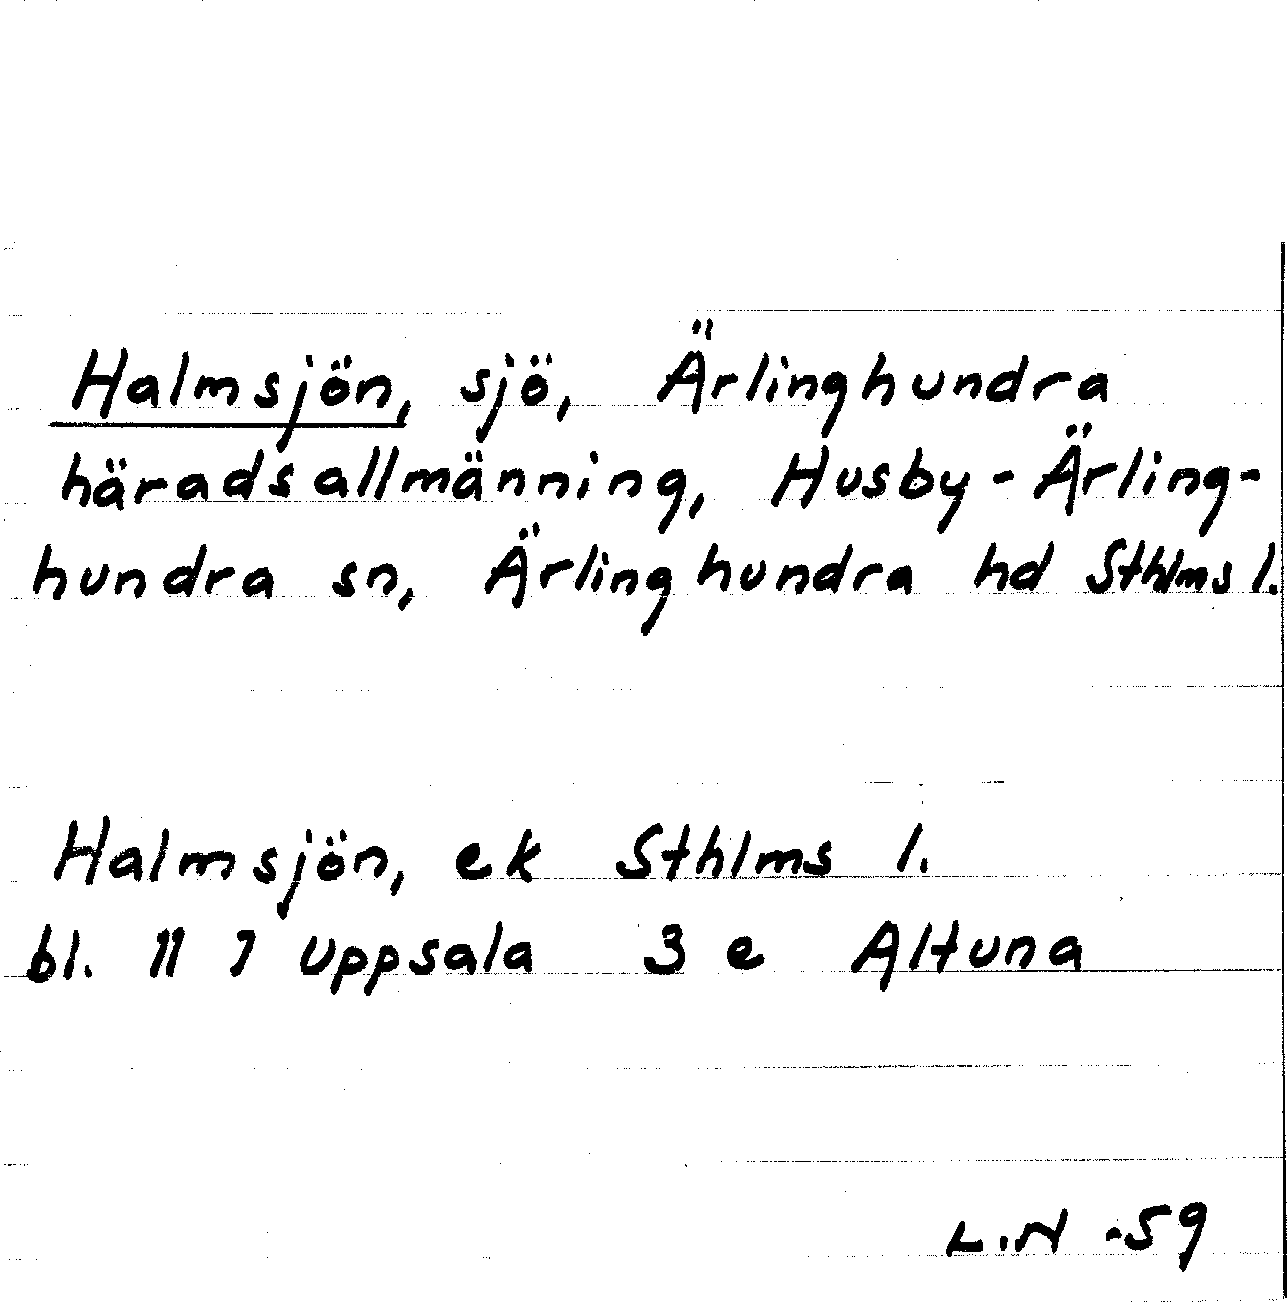 Halmsjön, sjö, Ärlinghundra
häradsallmänning, Husby-Ärling-
hundra sn, Ärlinghundra hd Sthlms l.
Halmsjön, ek Sthlms l.
bl. 11 7 Uppsala 3 e Altuna
L.N -59